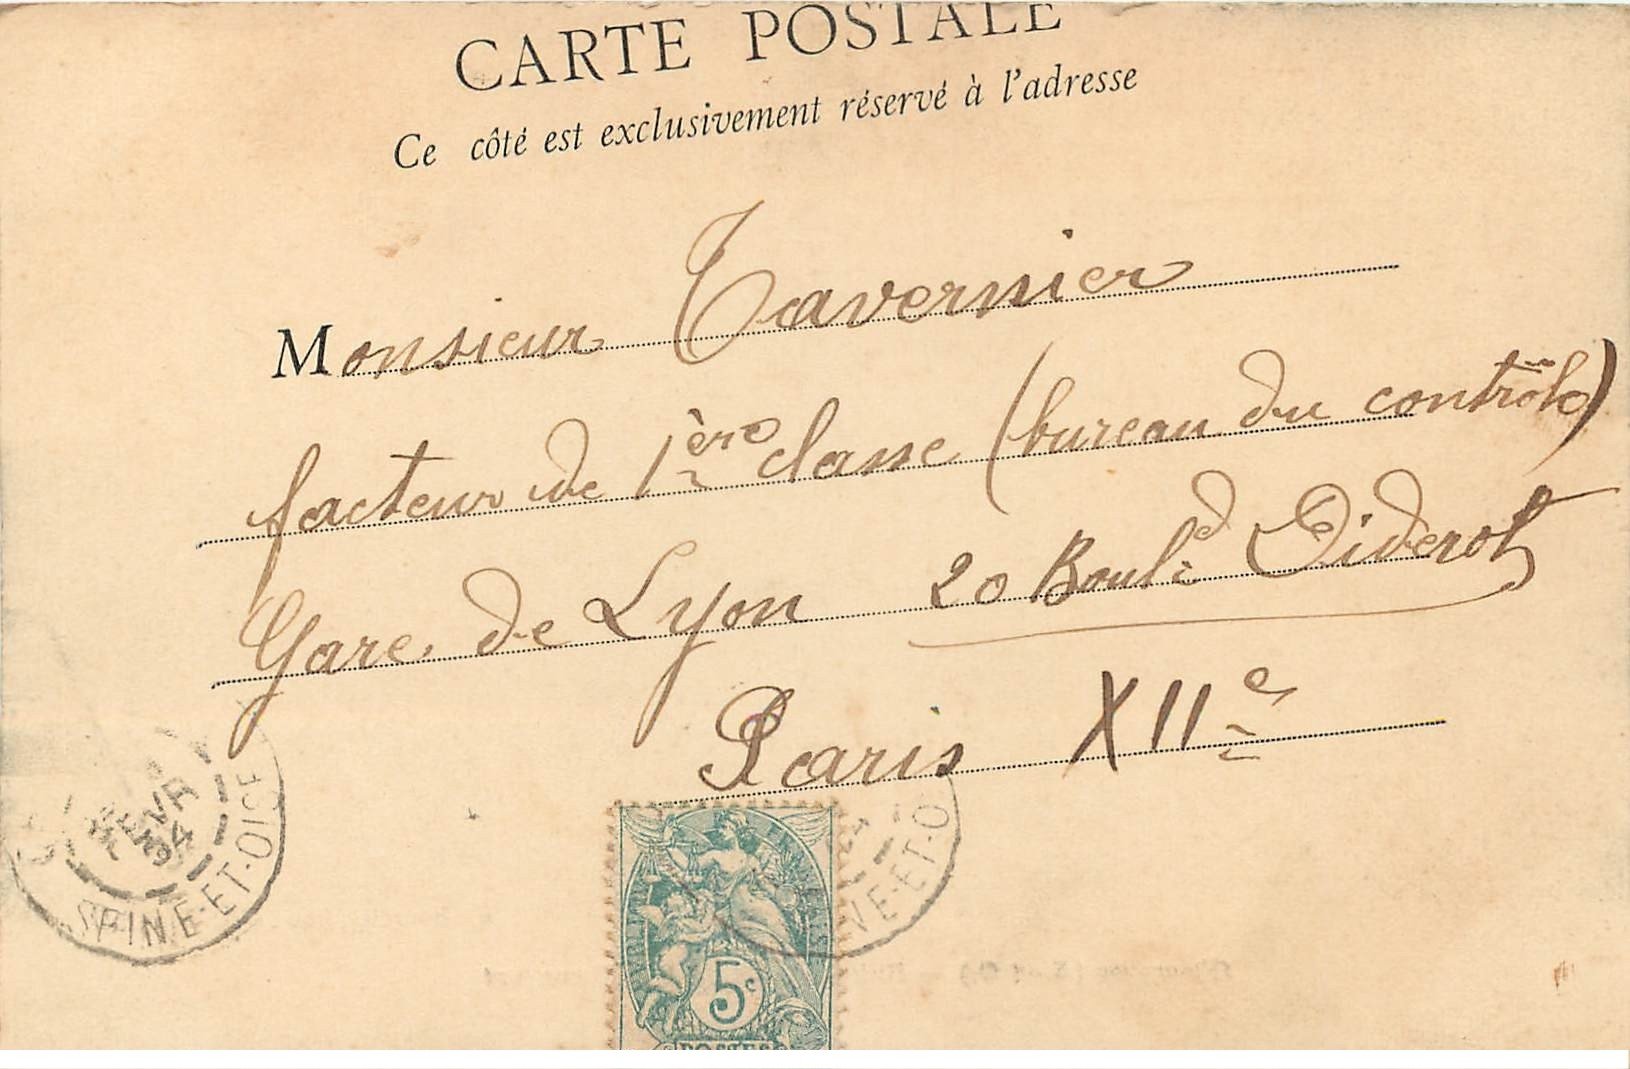 CARTE POSTALE
Ce côté est exclusivement réservé à l'adresse
Monsieur Tavernier
facteur de 1ère classe (bureau du contrôle)
Gare de Lyon 20 Boul.d Diderot
Paris XIIe
FEVR
04
SEINE-ET-OISE
NE-ET-O
5c
POSTES